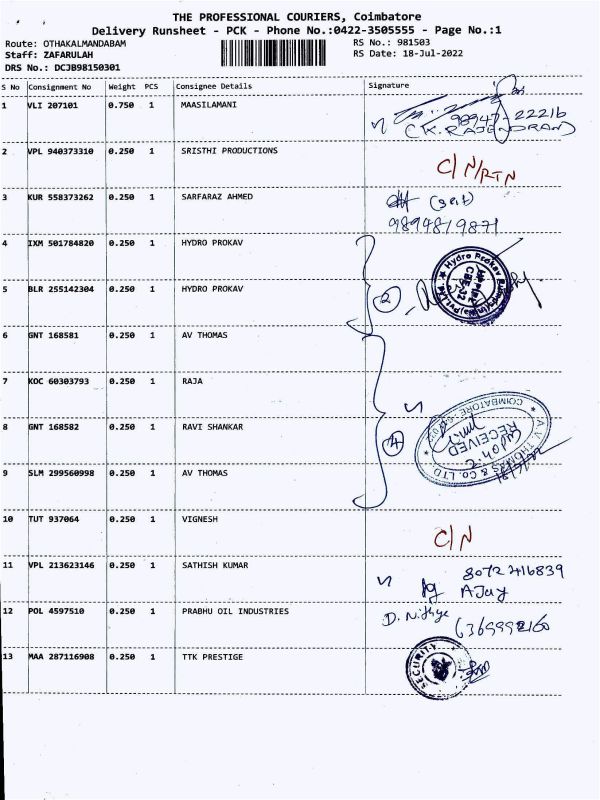 THE PROFESSIONAL COURIERS, Coimbatore
Delivery Runsheet - PCK - Phone No.:0422-3505555 - Page No.:1
Route: OTHAKALMANDABAM RS No.: 981503
Staff: ZAFARULAH RS Date: 18-Jul-2022
DRS No.: DCJB98150301
S No Consignment No Weight PCS Consignee Details Signature
1 VLI 207101 0.750 1 MAASILAMANI
98947-22216
C.K. RAJENDRAN
2 VPL 940373310 0.250 1 SRISTHI PRODUCTIONS
C/N/RTN
3 KUR 558373262 0.250 1 SARFARAZ AHMED
9894819871
4 IXM 501784820 0.250 1 HYDRO PROKAV
Hydro Prokav
5 BLR 255142304 0.250 1 HYDRO PROKAV
2
6 GNT 168581 0.250 1 AV THOMAS
7 KOC 60303793 0.250 1 RAJA
COIMBATORE
8 GNT 168582 0.250 1 RAVI SHANKAR
4
RECEIVED
A.V. THOMAS & CO. LTD.
9 SLM 299560998 0.250 1 AV THOMAS
10 TUT 937064 0.250 1 VIGNESH
C/N
11 VPL 213623146 0.250 1 SATHISH KUMAR
8072416839
AJay
12 POL 4597510 0.250 1 PRABHU OIL INDUSTRIES
D. Nithya
13 MAA 287116908 0.250 1 TTK PRESTIGE
SECURITY